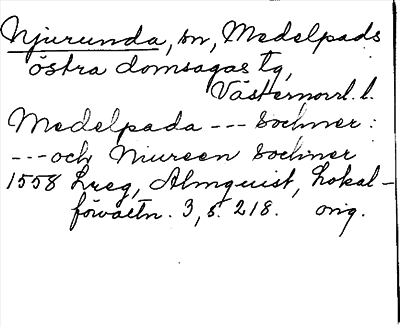 Njurunda, sn, Medelpads
östra domsagas tg,
Västernorrl. l.
Medelpada --- Sochner:
--- och Niureen Sochner
1558 Lreg, Almquist, Lokal-
förvaltn. 3, s. 218. orig.